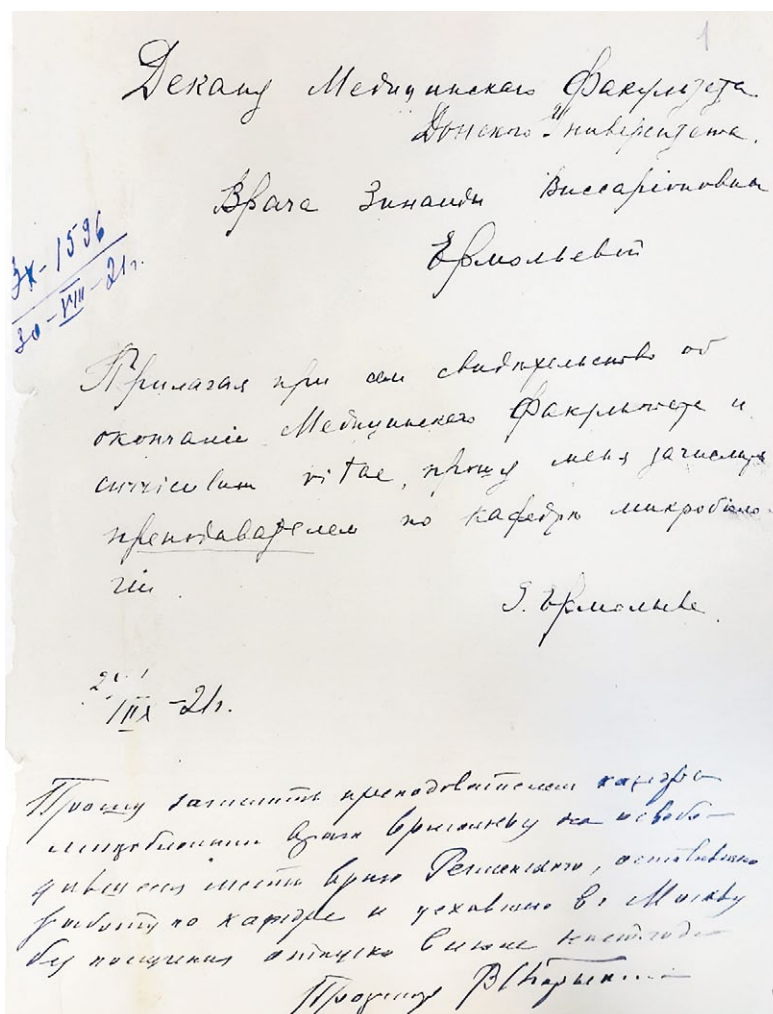 1
Декану Медицинскаго Факультета
Донского Университета.
Врача Зинаиды Виссаріоновны
Ермольевой
Зх-1596
30-VIII-21г.
Прилагая при сем свидѣтельство об
окончаніи Медицинскаго Факультета и
curriculum vitae, прошу меня зачислить
преподавателем по кафедрѣ микробіоло-
гіи
З. Ермольева.
-21г.
Прошу зачислить преподавателем кафедры
микробиологии врача Ермольеву на освобо-
дившееся место врача, оставившего
работу по кафедре и уехавшего в Москву
без получения отпуска в июне
Профессор